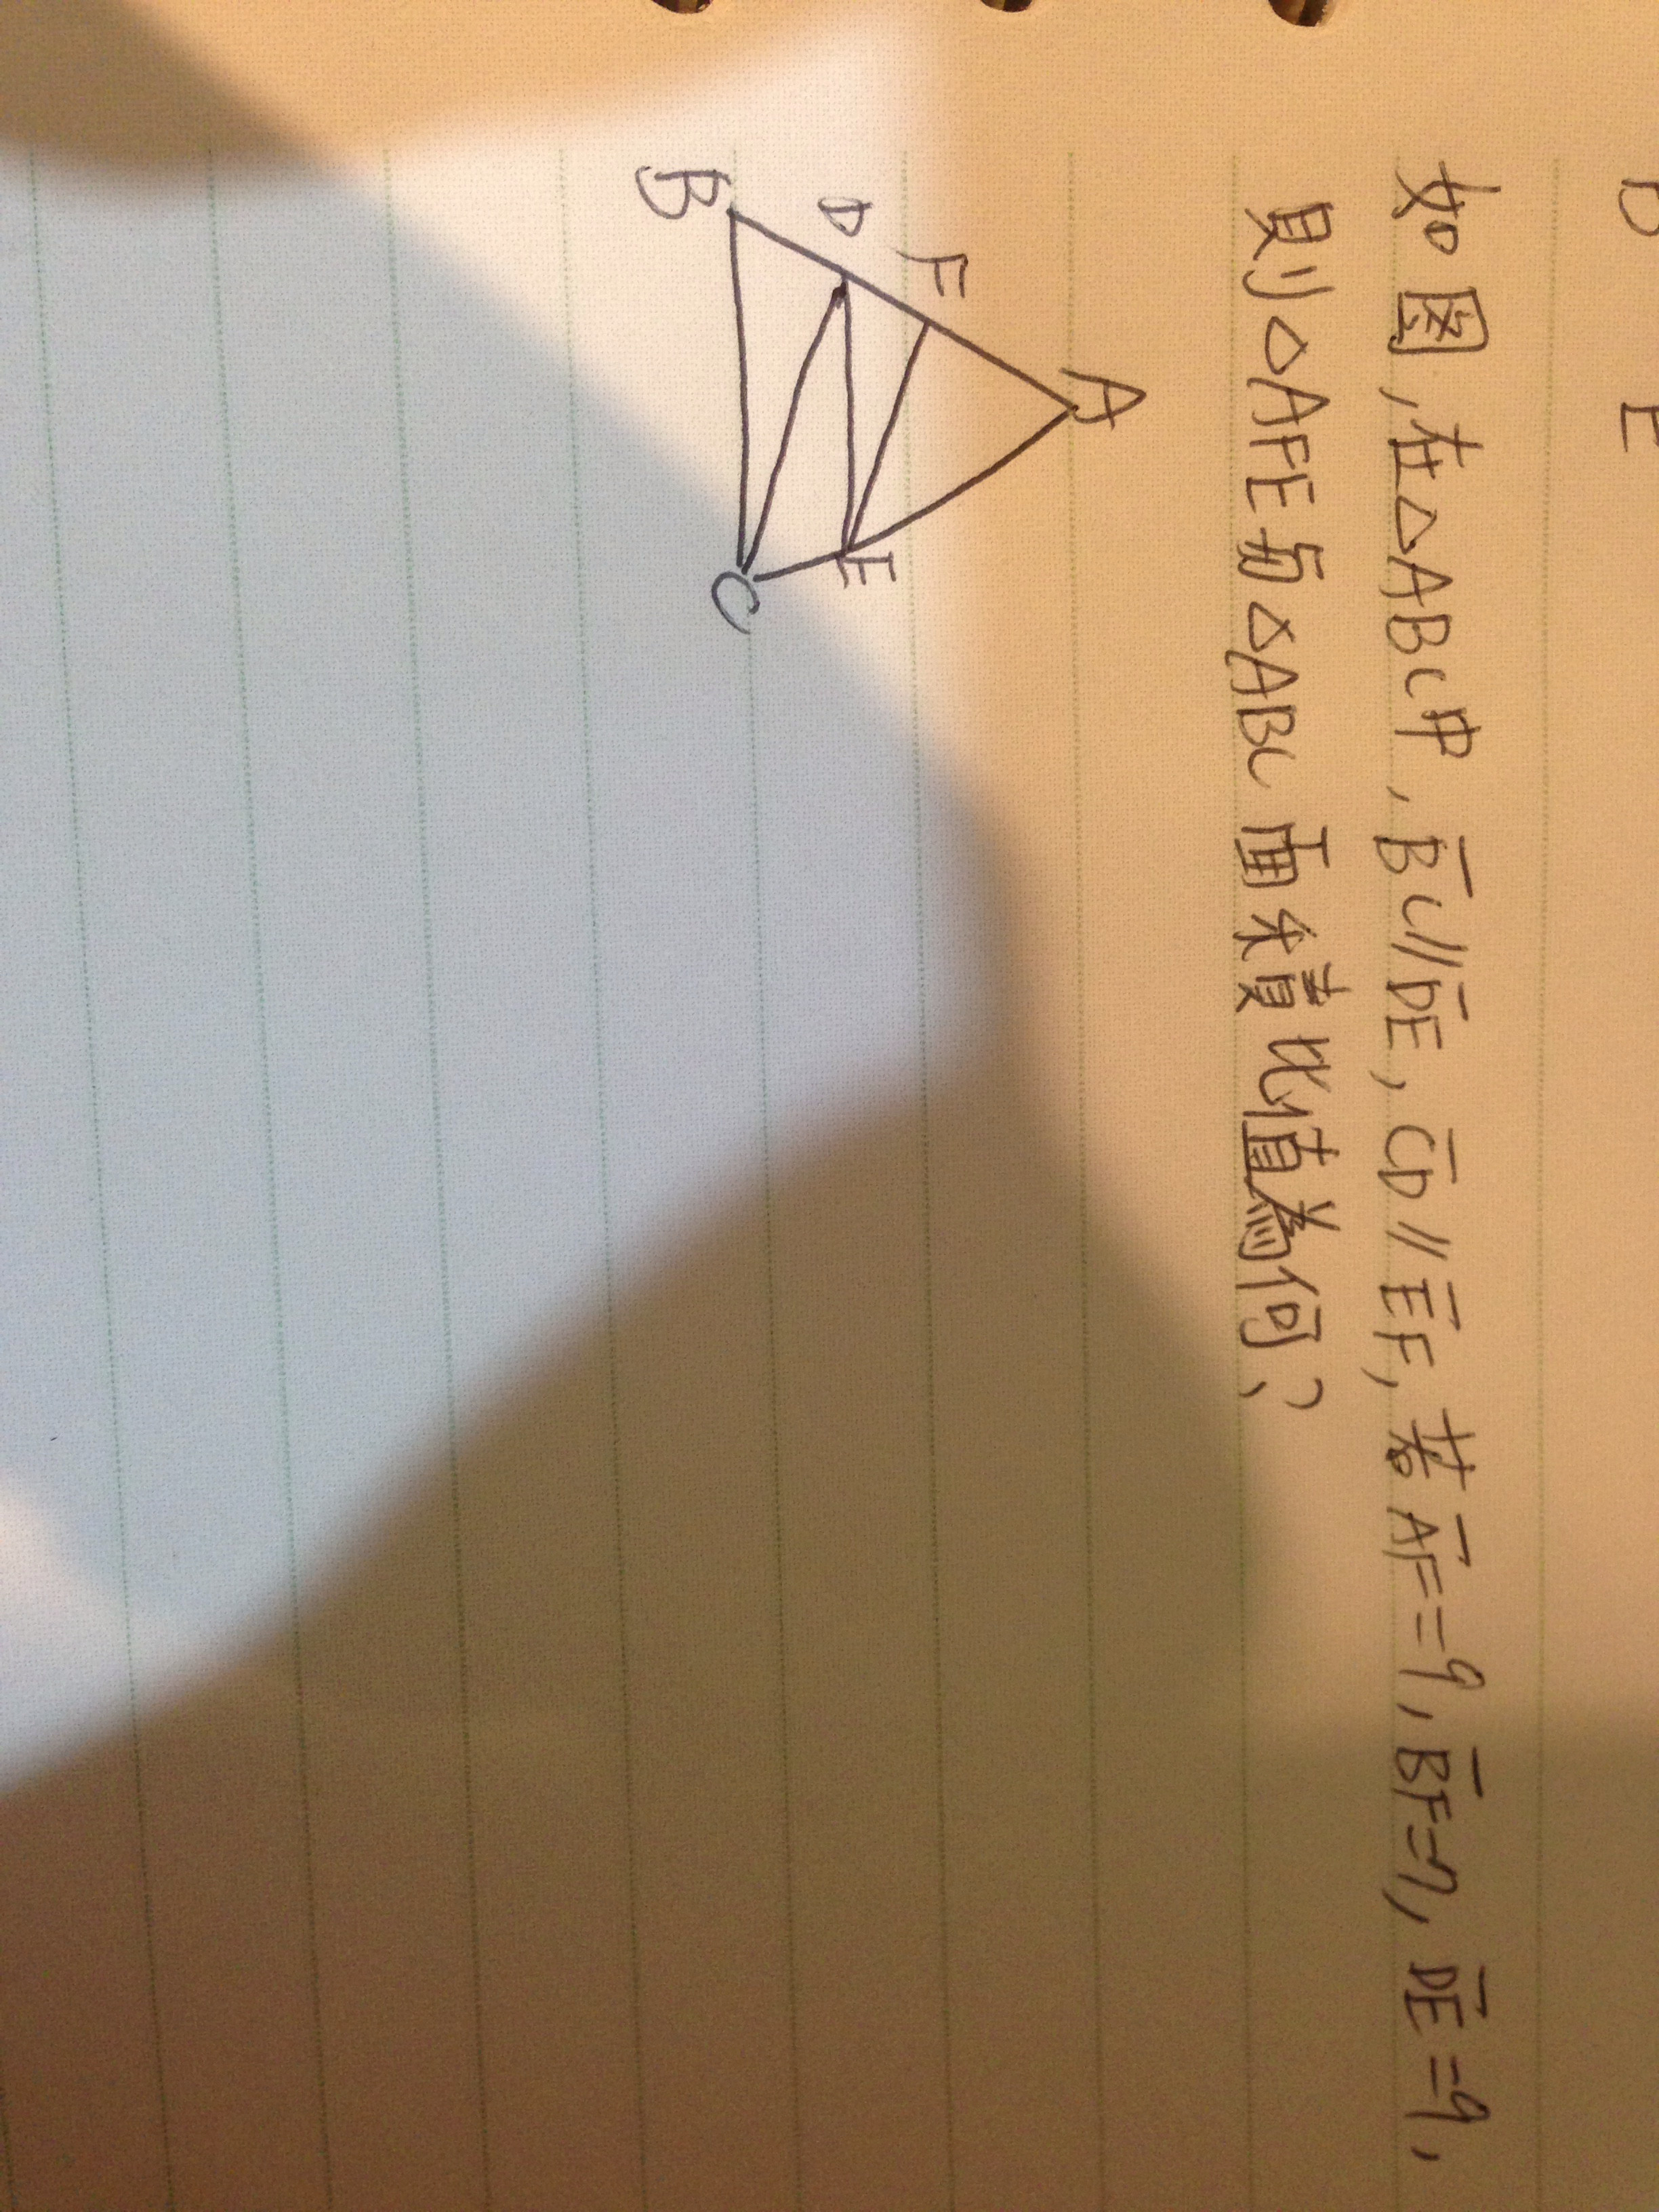 如図,在△ABC中, BC//DE, CD//EF, 若AF=9, BF=7, DE=9,
則△AFE與△ABC面積比值為何?
A
F
D
E
B
C